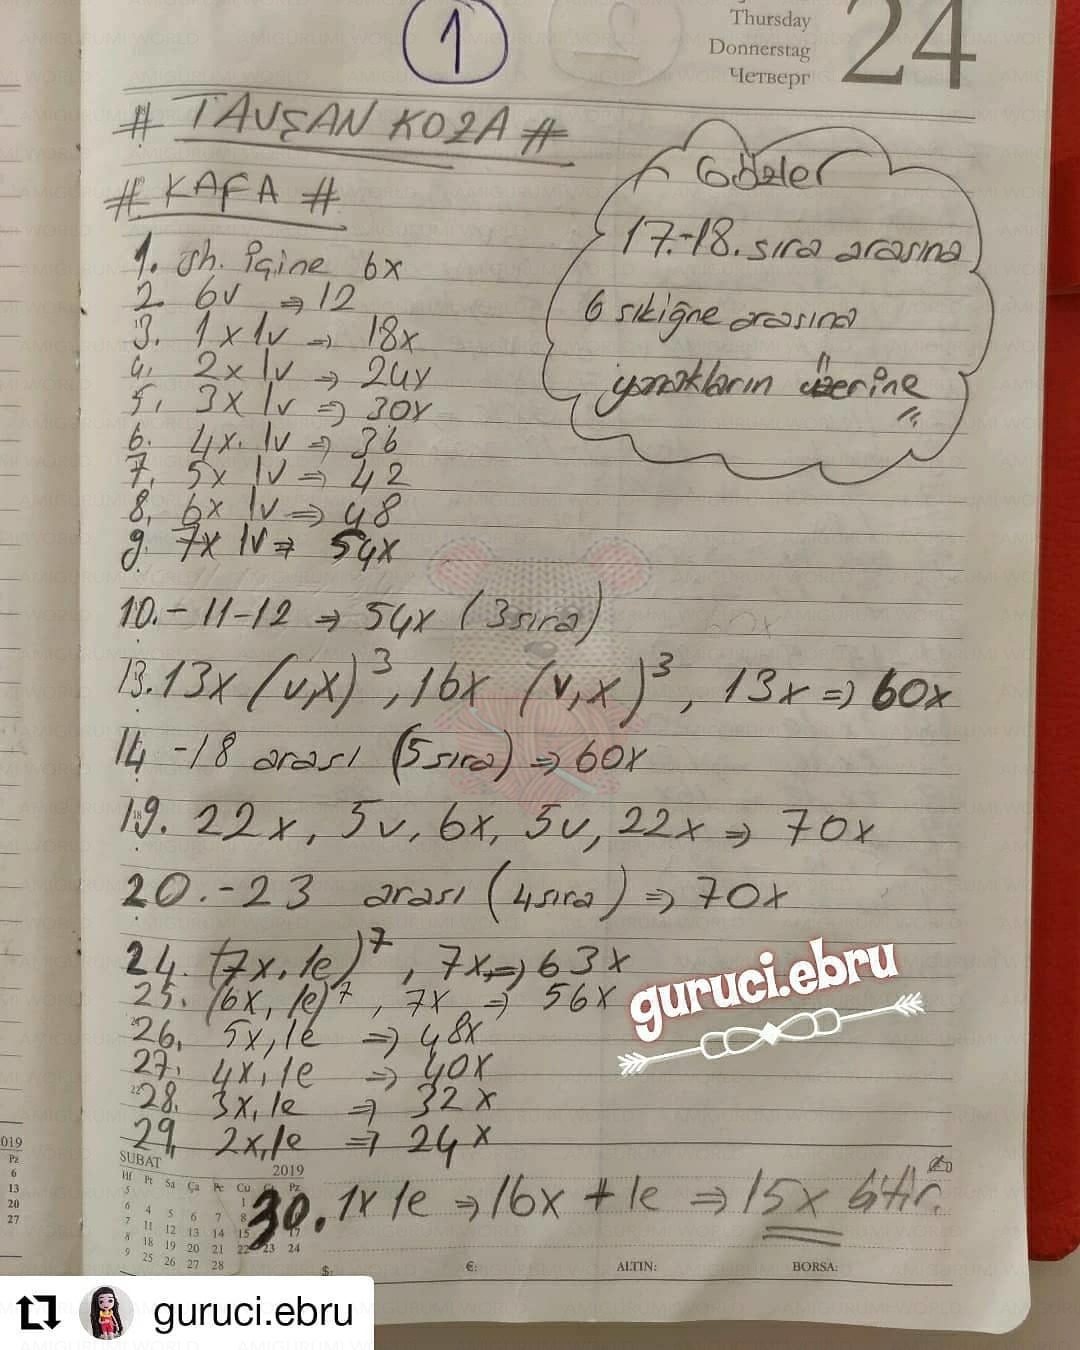 1
Thursday
Donnerstag
Четверг
24
# TAVŞAN KOZA #
# KAFA #
Gözler
17.-18. sıra arasına
6 sıkiğne arasına
yanakların üzerine
1. sh. içine 6x
2. 6v ⇒ 12
3. 1x 1v ⇒ 18x
4. 2x 1v ⇒ 24x
5. 3x 1v ⇒ 30x
6. 4x. 1v ⇒ 36
7. 5x 1v ⇒ 42
8. 6x 1v ⇒ 48
9. 7x 1v ⇒ 54x
10.-11-12 ⇒ 54x (3 sıra)
13. 13x (v,x)³, 16x (v,x)³, 13x ⇒ 60x
14-18 arası (5 sıra) ⇒ 60x
19. 22x, 5v, 6x, 5v, 22x ⇒ 70x
20.-23 arası (4 sıra) ⇒ 70x
24. (7x, 1e)⁷, 7x, ⇒ 63x
25. (6x, 1e)⁷, 7x ⇒ 56x
26. 5x, 1e ⇒ 48x
27. 4x, 1e ⇒ 40x
28. 3x, 1e ⇒ 32x
29. 2x, 1e ⇒ 24x
30. 1x 1e ⇒ 16x + 1e ⇒ 15x bitir.
guruci.ebru
ŞUBAT 2019
Hf Pt Sa Ça Pe Cu Ct Pz
5 1
6 4 5 6 7 8
7 11 12 13 14 15 17
8 18 19 20 21 22 23 24
9 25 26 27 28
$: €: ALTIN: BORSA:
019
Pz
6
13
20
27
guruci.ebru
AMIGURUMI WORLD